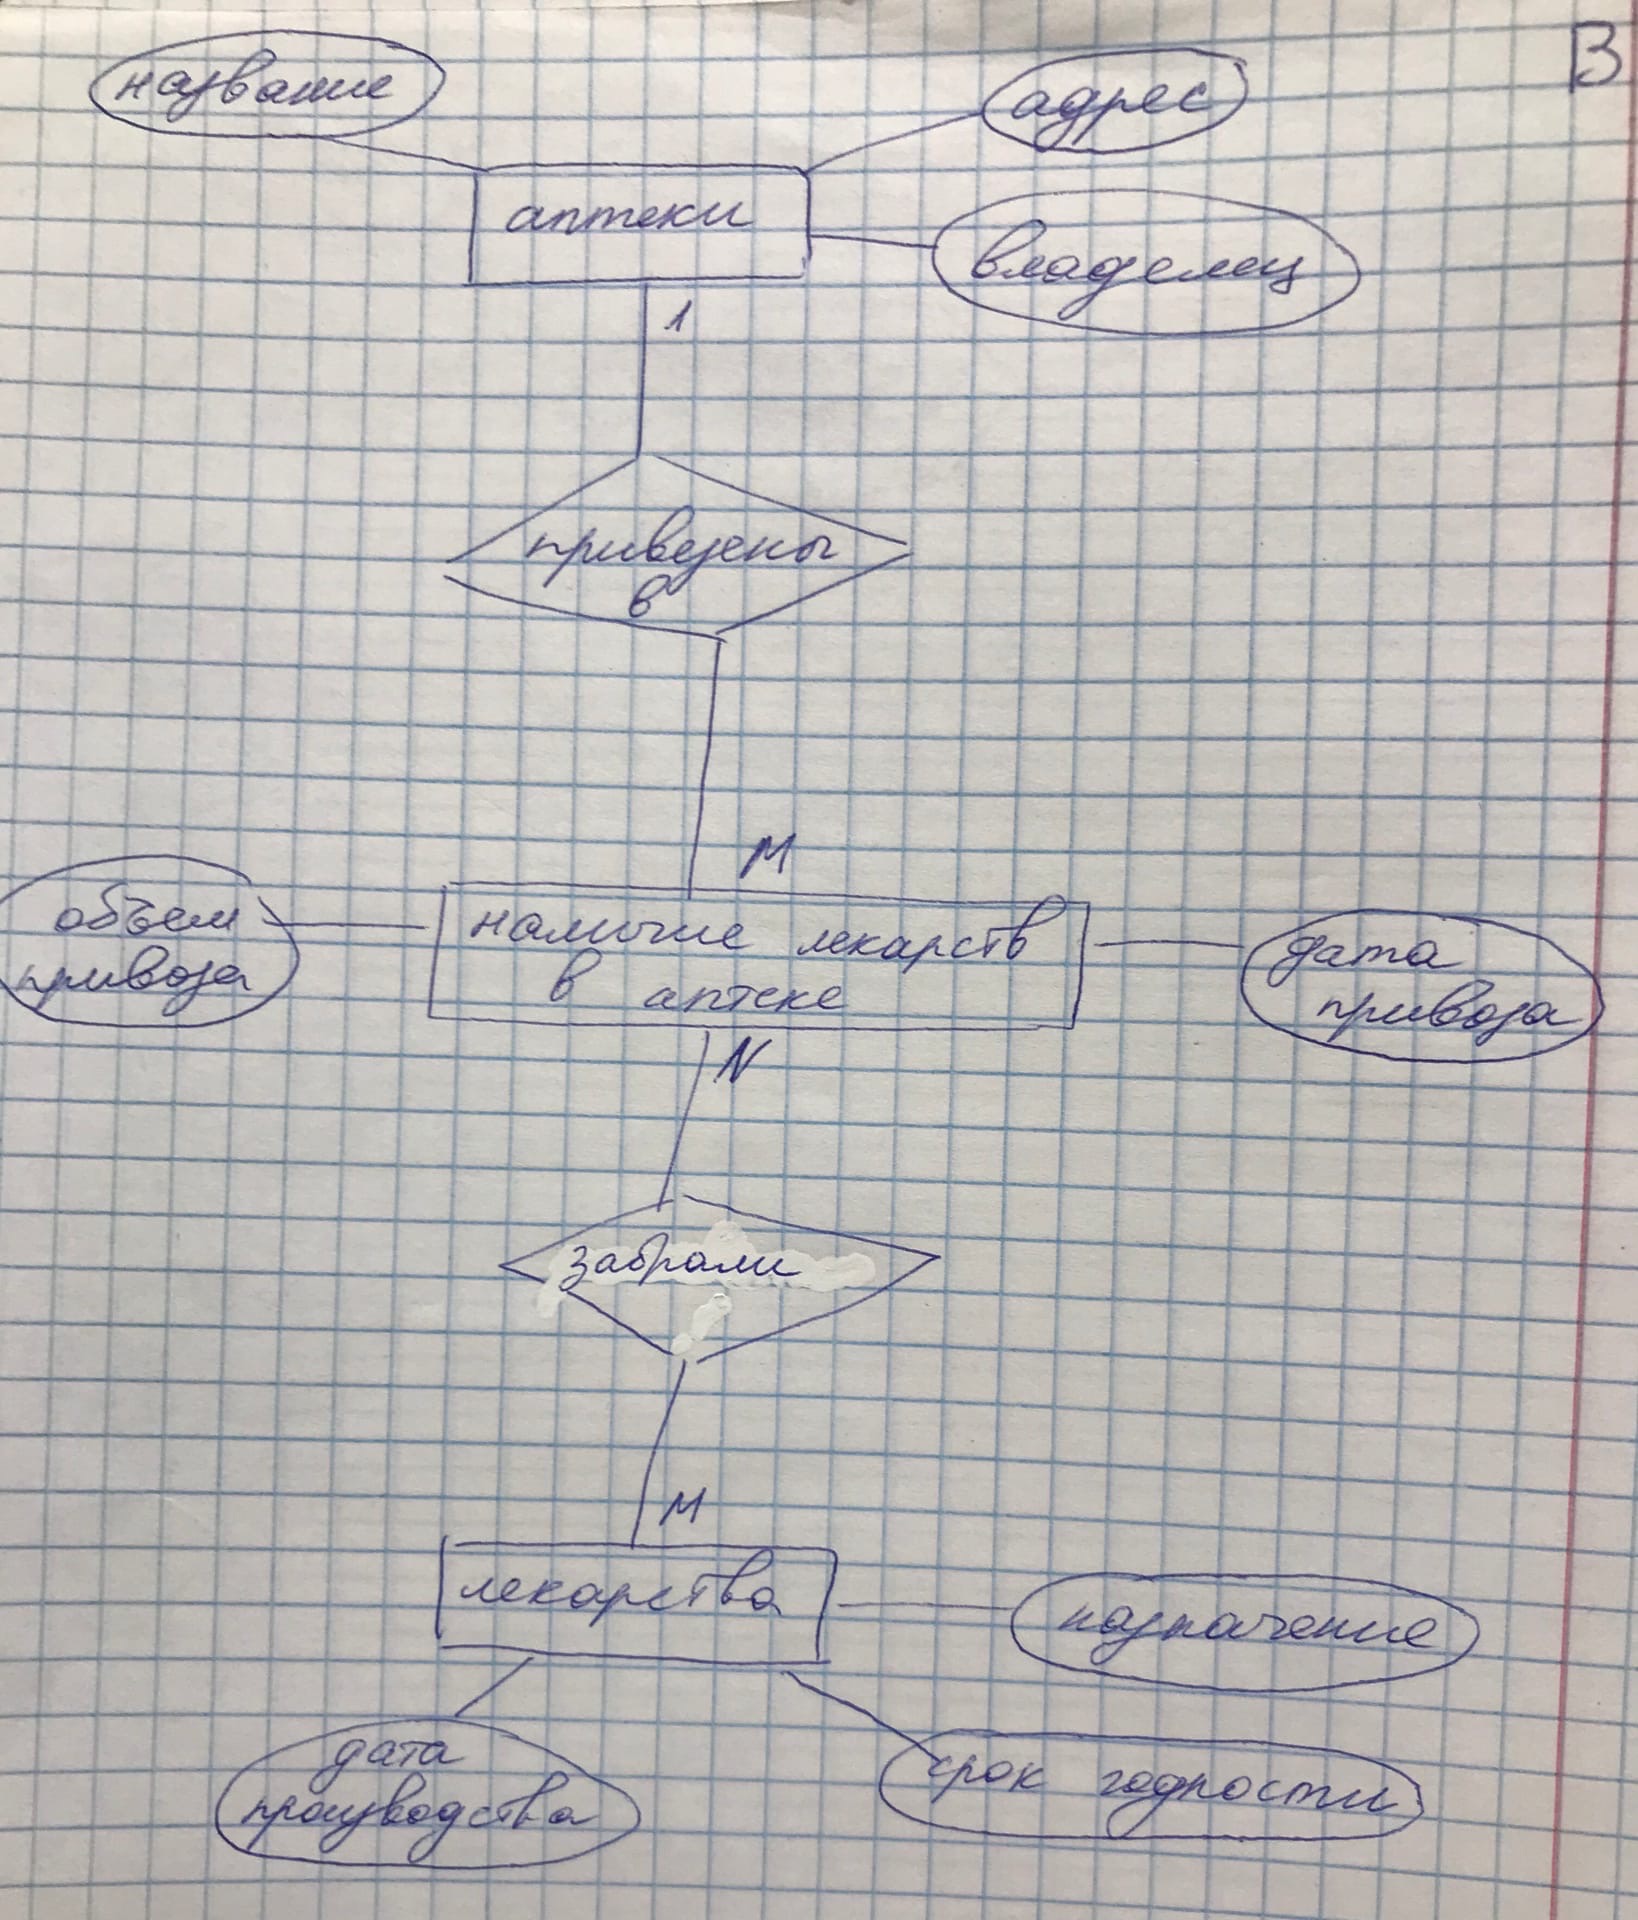 В
название
адрес
аптеки
владелец
1
привезены
в
М
объем
привоза
наличие лекарств
в аптеке
дата
привоза
N
забрали
М
лекарства
назначение
дата
производства
срок годности